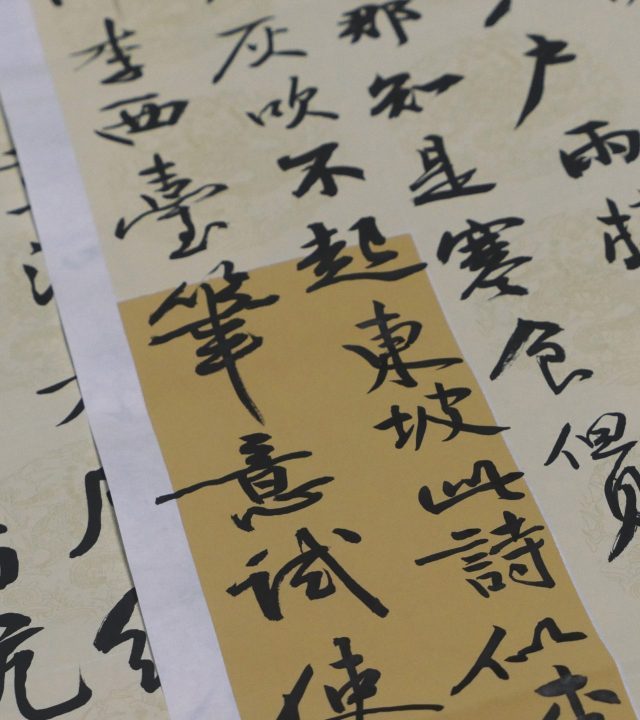 户雨
那知是寒食但見
灰吹不起東坡此詩似李
李西臺筆意試使